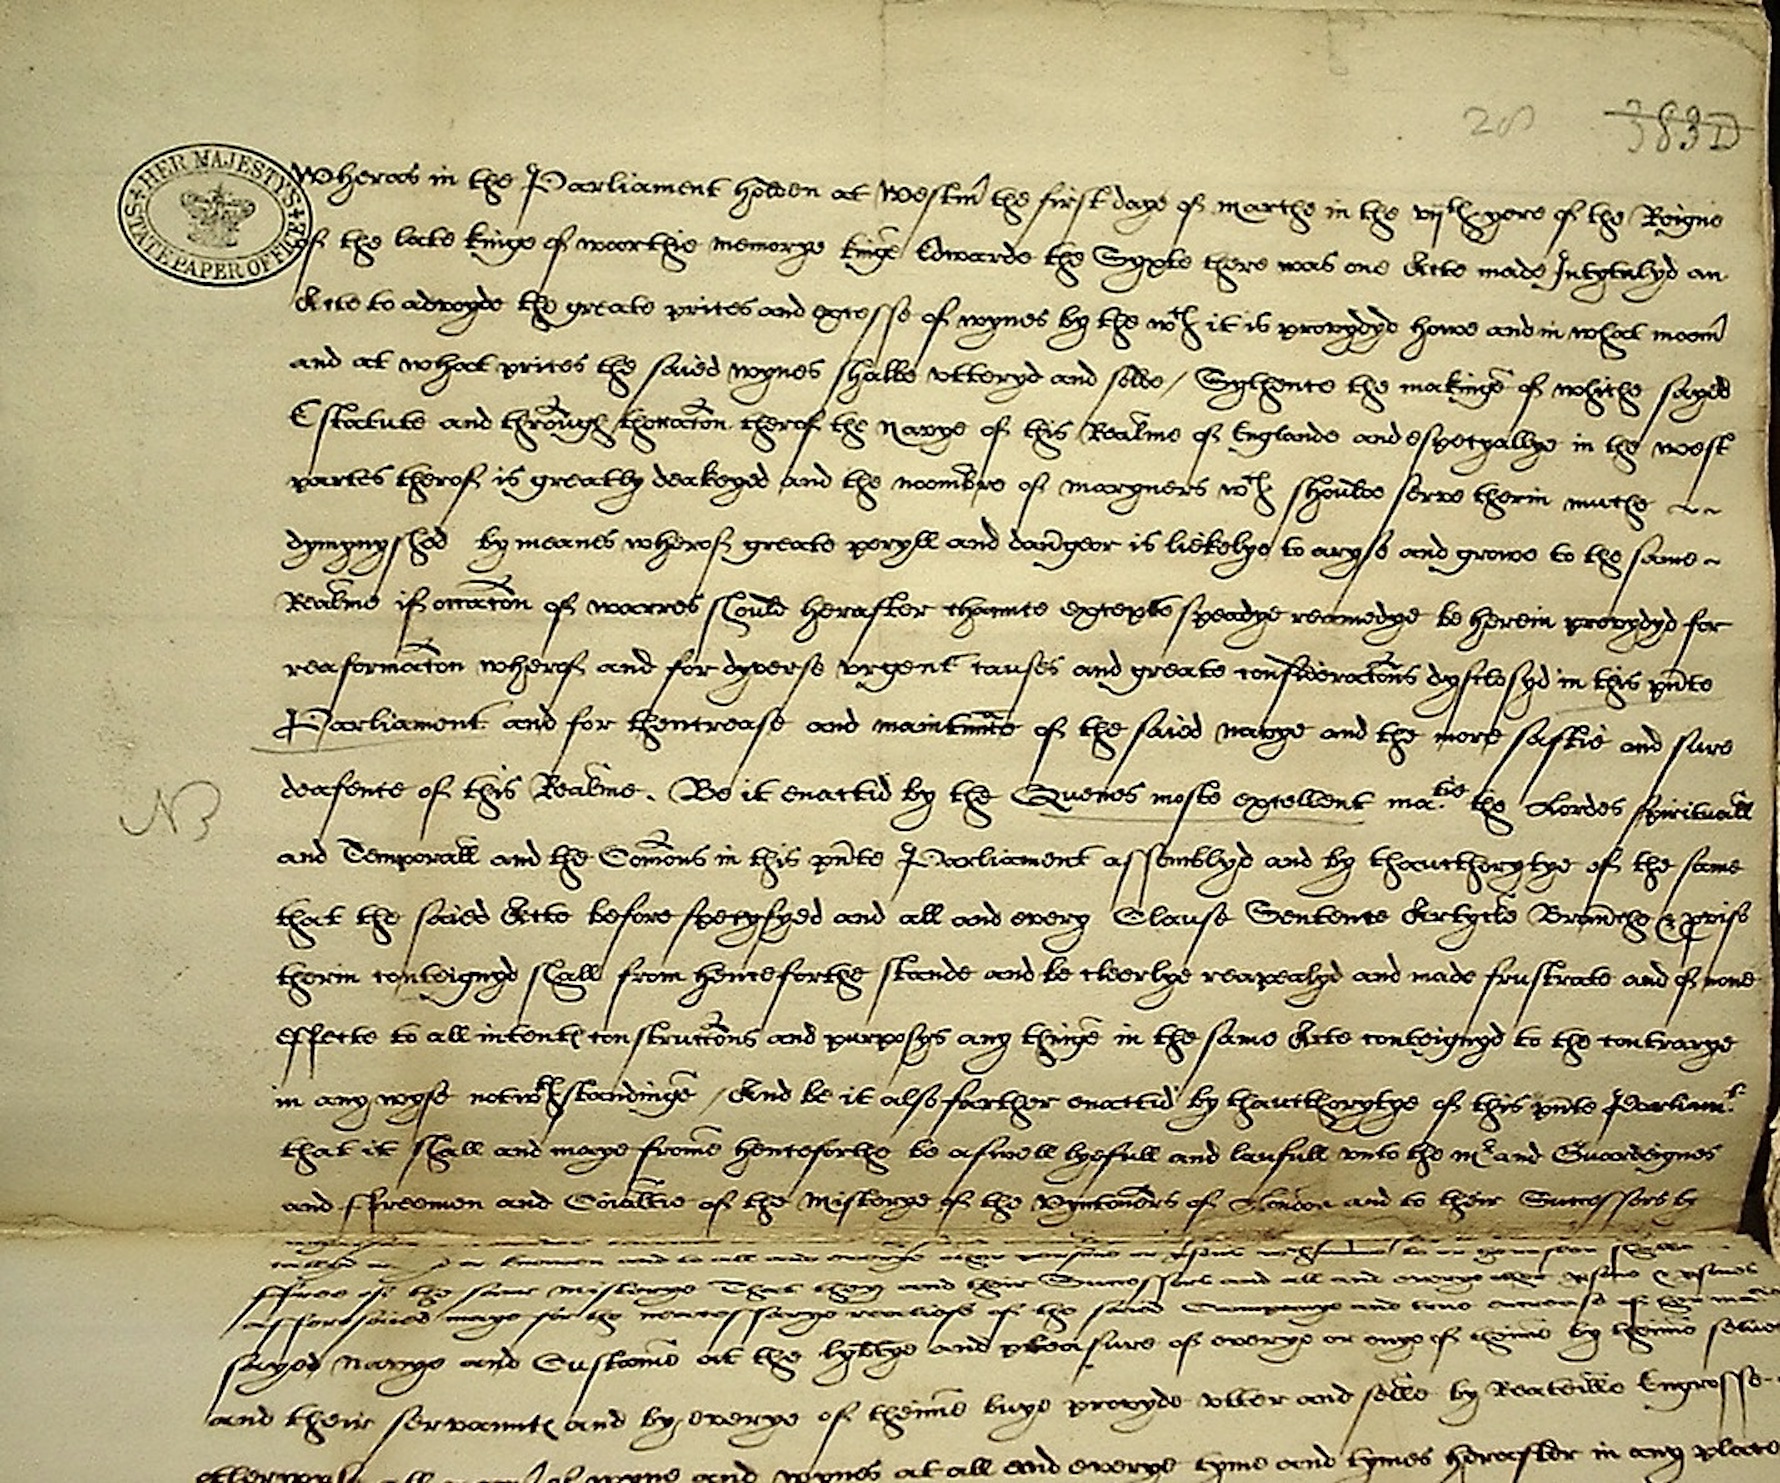 28 383D
HER MAJESTY'S
STATE PAPER OFFICE
Wheras in the Parliament holden at Westm the first daye of Marche in the vijth yere of the Reigne
of the late kinge of woorthie memorye kinge Edwarde the Syxte there was one Acte made Intytulyd an
Acte to advoyde the greate prices and excesse of wynes by the wch it is provydyd howe and in what maner
and at what prices the saied wynes shalbe vtteryd and solde / Sythence the makinge of whiche sayed
Estatute and through thoccacion therof the Navye of this Realme of Englande and especyallye in the west
partes therof is greatly deakeyed and the noombre of maryners wch shoulde serve therin muche
dymynyshed by meanes wherof greate peryll and daungeor is liekelye to aryse and growe to the same
Realme if occacion of warres should herafter chaunce excepte speadye reamedye be herein provydyd for
reaformacion wherof and for dyverse vrgent causes and greate consideracions dysclosyd in this pnte
Parliament and for thencrease and maintnnce of the saied navye and the more saftie and sure
deafence of this Realme. Be it enactid by the Quenes moste excellent matie the Lordes spirituall
and Temporall and the Comons in this pnte Parliament assemblyd and by thaucthorytye of the same
N3
that the saied Acte before specyfyed and all and every Clause Sentence Artycle Braunche & pviso
therin conteignyd shall from henceforthe stande and be cleerlye reapealyd and made frustrate and of none
effecte to all intentes construccions and purposys any thinge in the same Acte conteignyd to the contrarye
in any wyse notwthstandinge / And be it also farther enactid by thaucthorytye of this pnte Parliamt
that it shall and maye frome henceforthe be aswell lyefull and laufull vnto the Mr and Guardeignes
and ffreemen and Coialtie of the Misterye of the Vyntoners of London and to their Successors by
ffree of the same misterye That they and their Successors and all and everye other psone & psones
afforsaied maye for the necessarye realiefe of the saied Companye and true encrease of the
sayed Navye and Custome at the lybtye and pleasure of everye or enye of theime by theime selves
and their servauntes and by everye of theime buye provyde vtter and selle by Reateille Engrosse
all of wyne and wynes at all and everye tyme and tymes herafter in any place